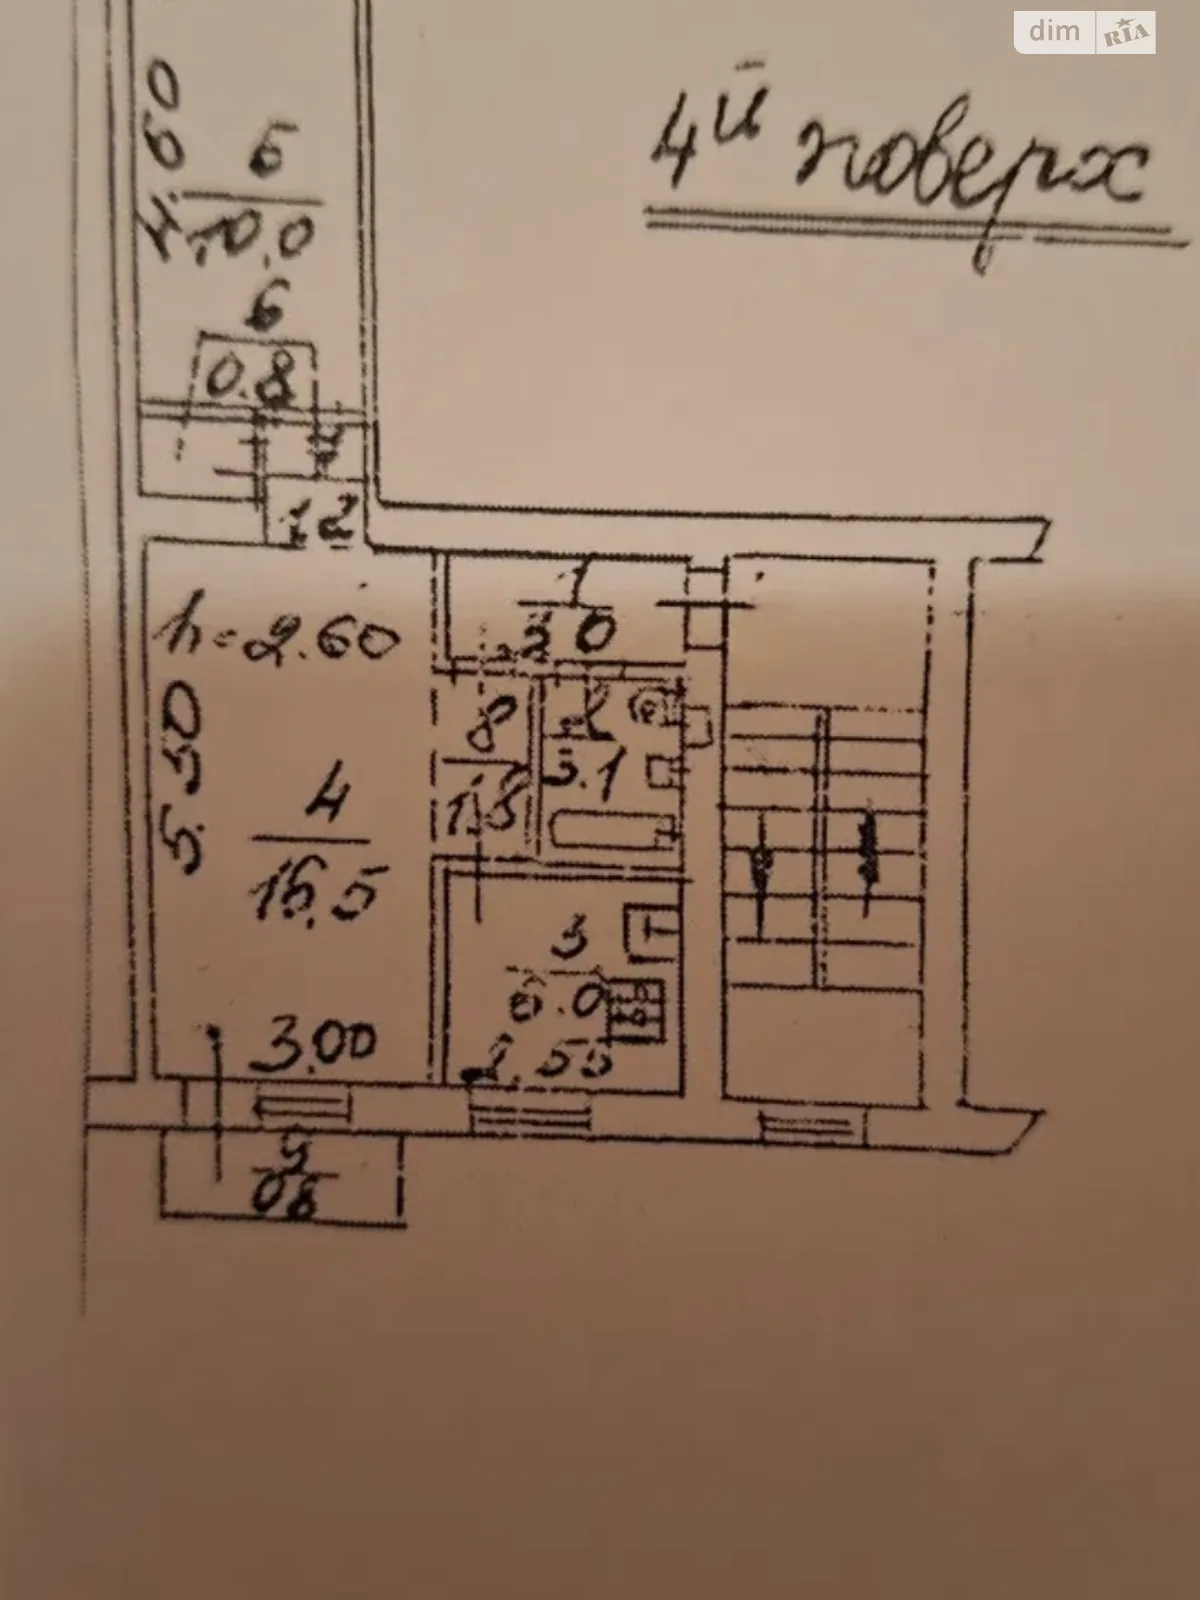 dim RIA
4й поверх
4.50
5
10,0
6
0.8
12
1
h=2.60
5.50
4
16,5
8
2
3.1
3
6.0
2.55
3.00